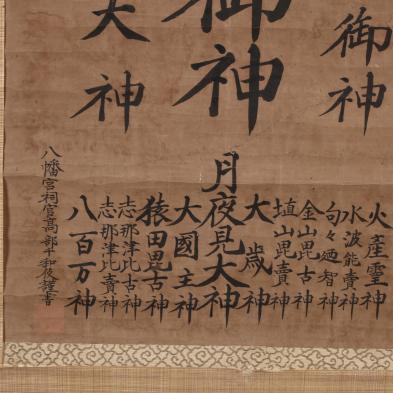 御神
御神
大神
火産霊神
水波能賣神
句々廼智神
金山毘古神
埴山毘賣神
大歳神
月夜見大神
大國主神
猿田毘古神
志那津比古神
志那津比賣神
八百万神
八幡宮祠官高部 謹書